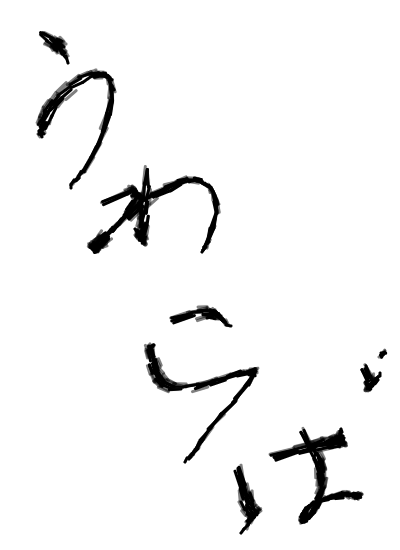 うわらば